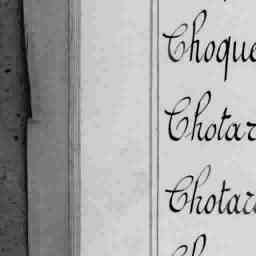 Choque
Chotar
Chotar